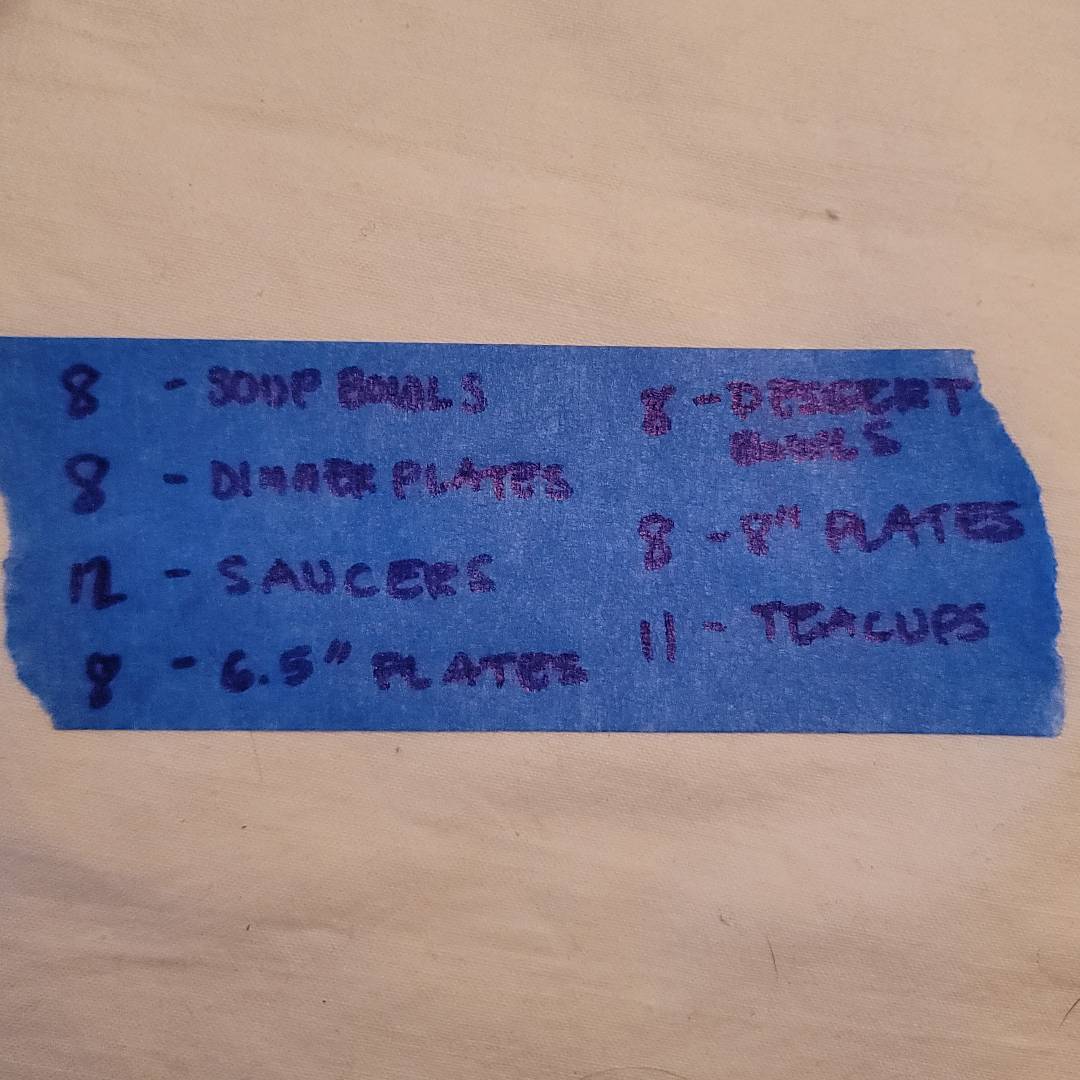 8 - SOUP BOWLS
8 - DINNER PLATES
12 - SAUCERS
8 - 6.5" PLATES
8 - DESSERT
BOWLS
8 - 8" PLATES
11 - TEACUPS